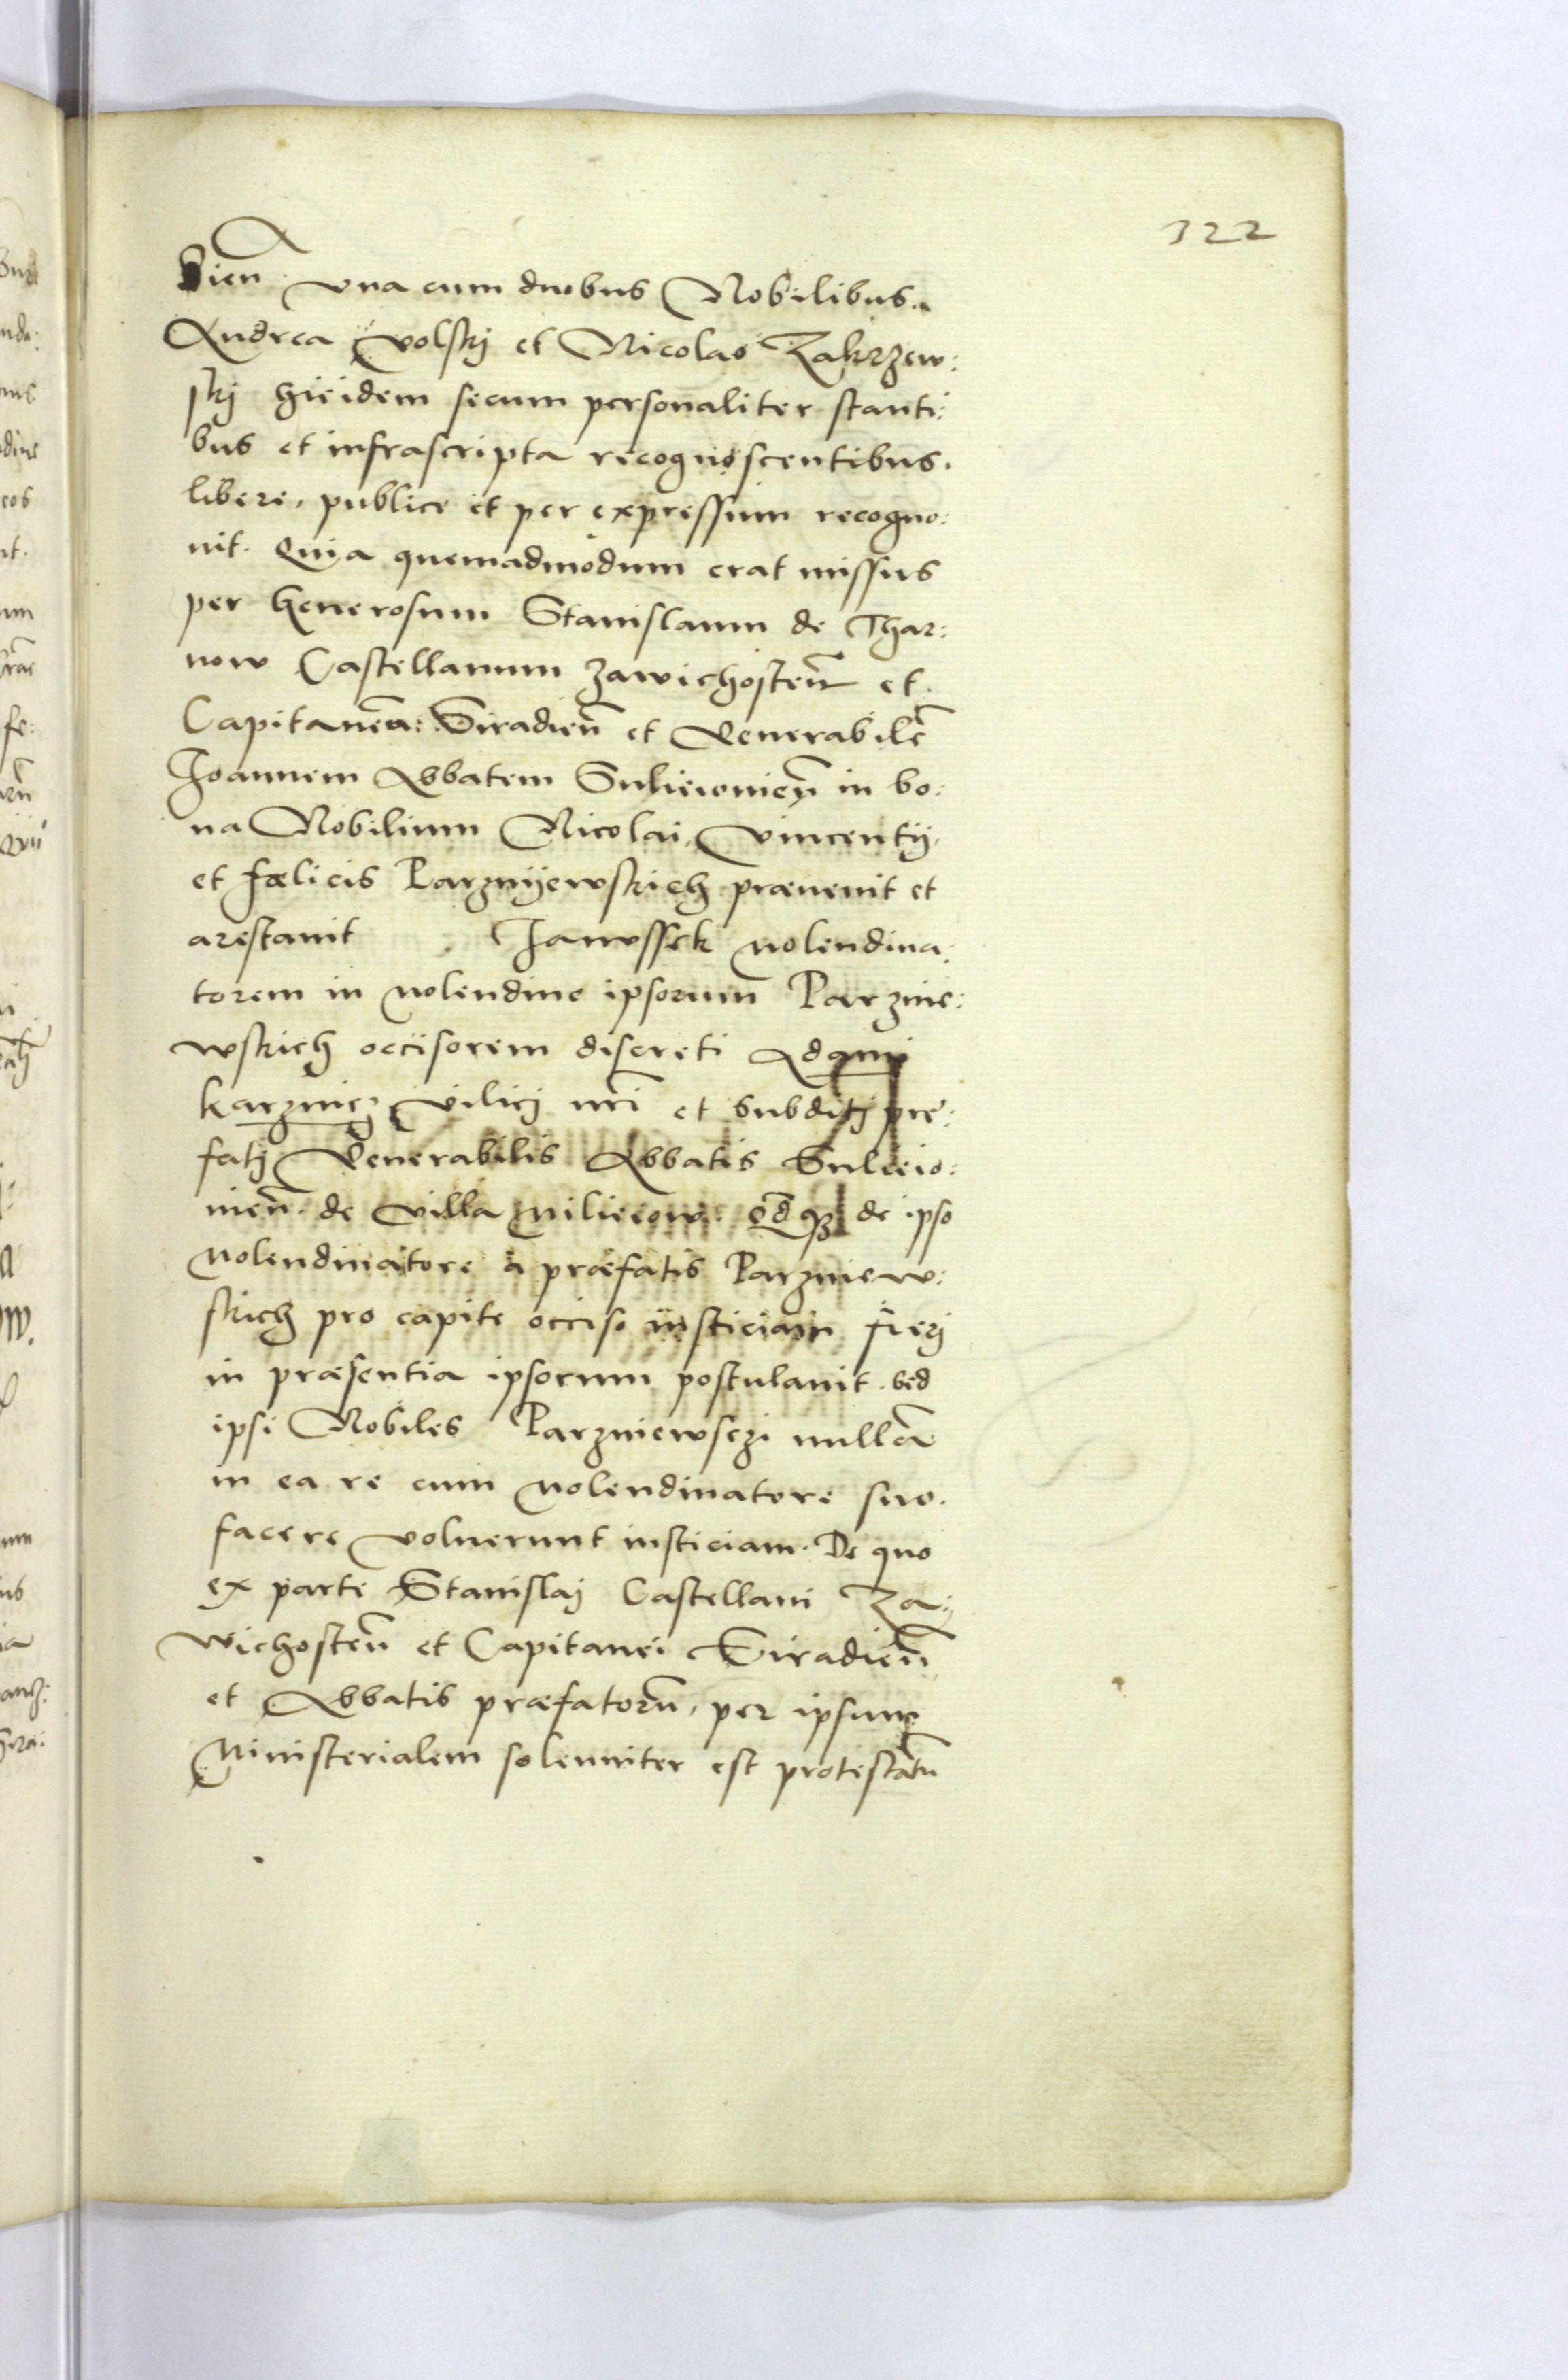 322
Sien̄. vna cum duobus Nobilibus.
Andrea volskj et Nicolao Zakrzew:
skj hicidem secum personaliter stanti:
bus et infrascripta recognoscentibus.
libere, publice et per expressum recogno:
uit. Quia quemadmodum erat missus
per Generosum Stanislaum de Thar:
now Castellanum Zawichosten̄ et
Capitaneū: Siradien̄ et Venerabilē
Joannem Abbatem Sulieiouien̄ in bo:
na Nobilium Nicolai, Vincentij,
et fœlicis Parznijewskich præuenit et
arestauit Janussek molendina:
torem in molendino ipsorum Parznie:
wskich occisorem discreti Adamj
karznicz vilicj nr̄i et subditj pre:
fatj Venerabilis Abbatis Sulieio:
uien̄. de Villa Milieiow. de ipso
Molendinatore a præfatis Parzniew:
skich pro capite occiso iusticiam fierj
in præsentia ipsorum postulauit. sed
ipsi Nobiles Parzniewsczi nullā
in ea re cum Molendinatore suo.
facere voluerunt iusticiam. De quo
ex parte Stanislaj Castellani Za:
wichosten̄ et Capitanei Siradien̄
et Abbatis præfatorū, per ipsum
Ministerialem solenniter est protestatū